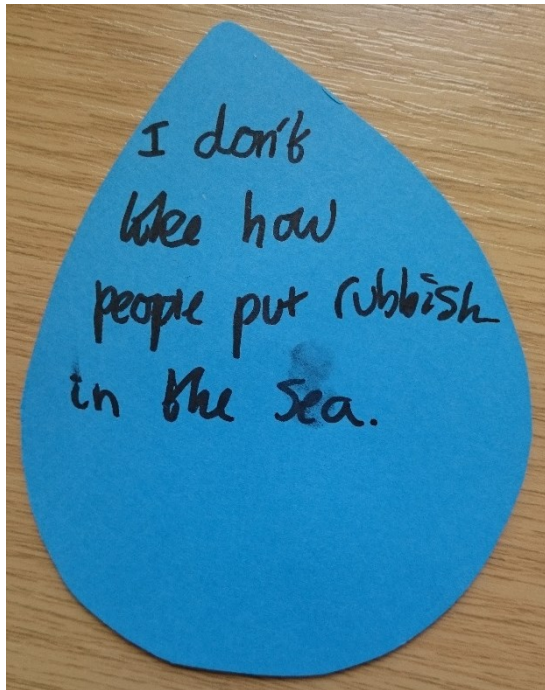 I don't
like how
people put rubbish
in the sea.